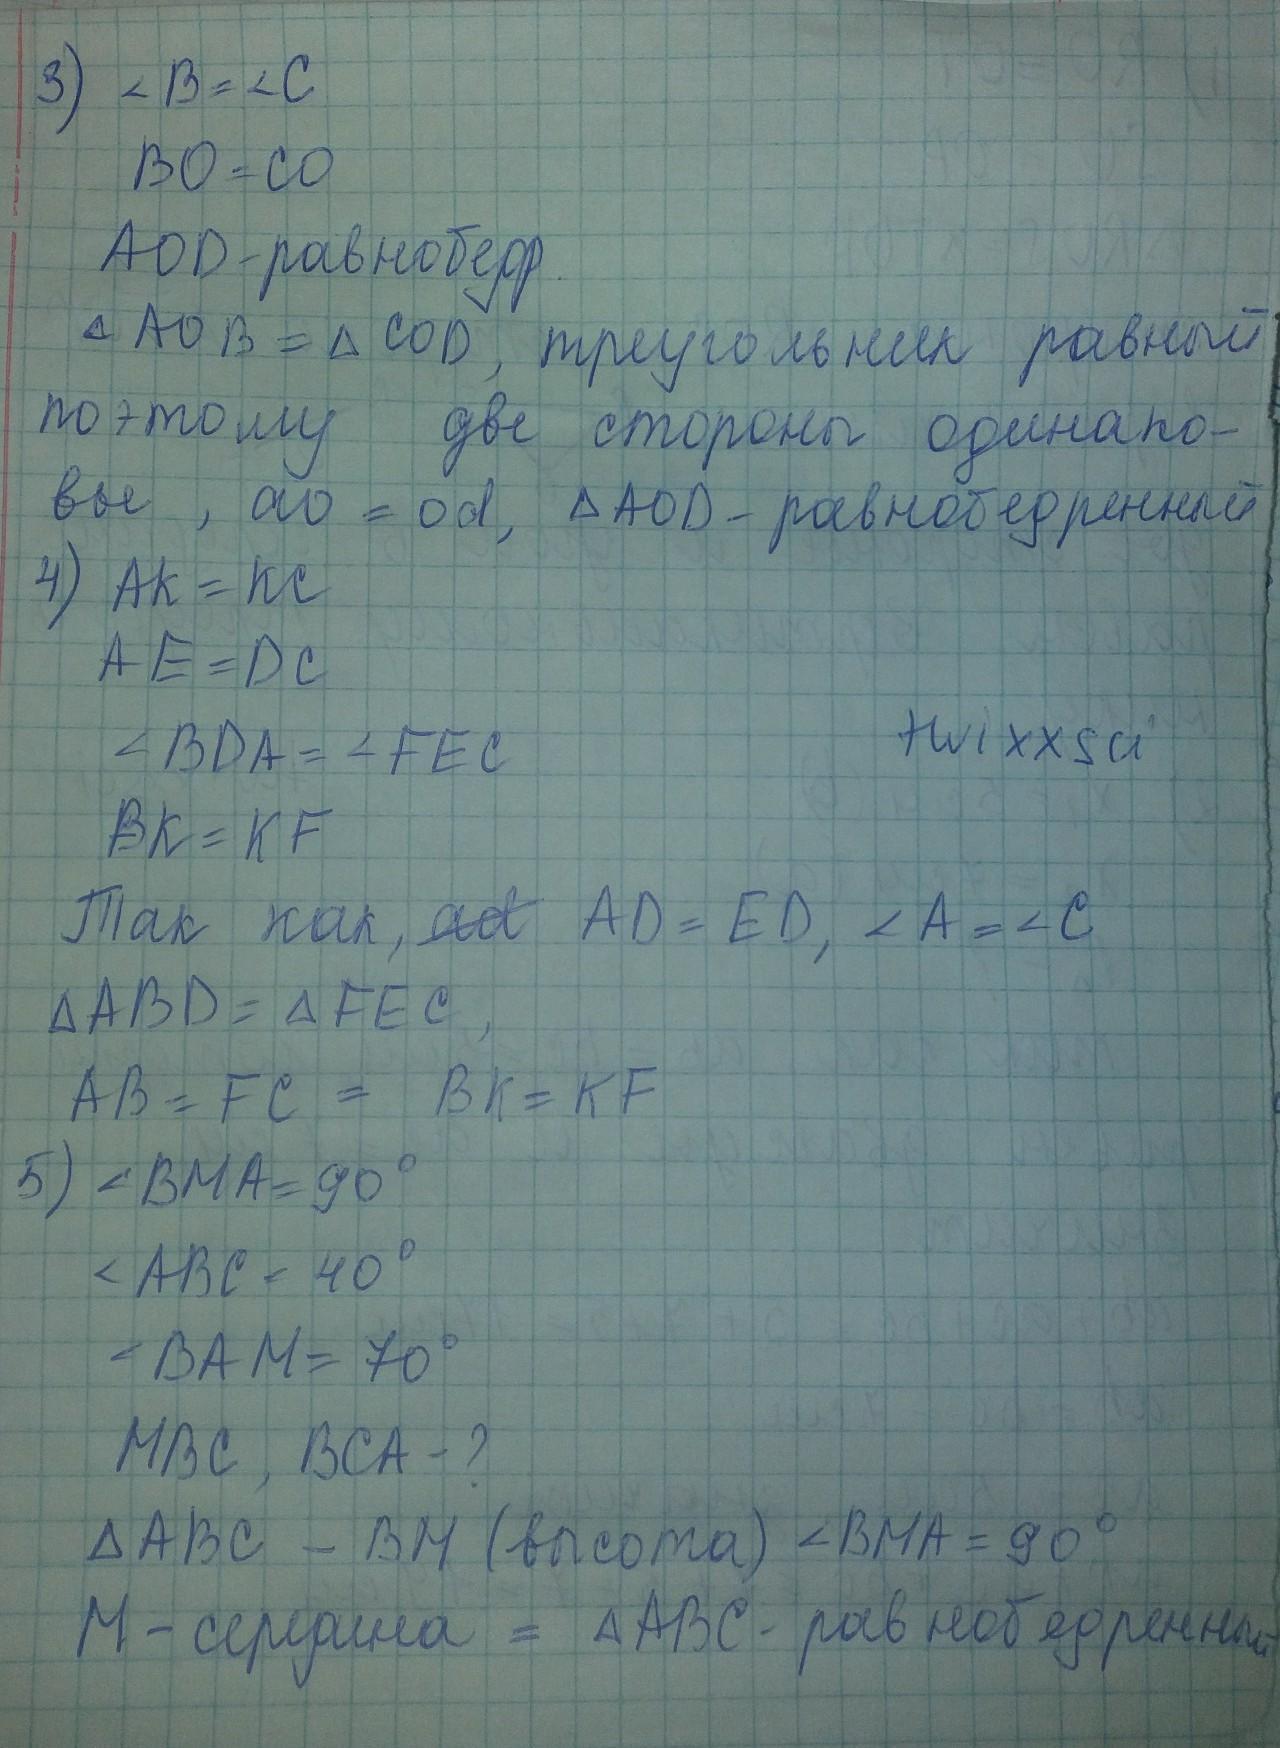 3) <B=<C
BO=CO
AOD-равнобедр.
△AOB=△COD, треугольник равный
поэтому две стороны одинако-
вые, ao=od, △AOD-равнобедренный
4) AK=KC
AE=DC
<BDA=<FEC
twixxsa
BK=KF
Так как, ad AD=ED, <A=<C
△ABD=△FEC,
AB=FC = BK=KF
5) <BMA=90°
<ABC=40°
<BAM=70°
MBC, BCA-?
△ABC - BM (высота) <BMA=90°
M-середина = △ABC-равнобедренный